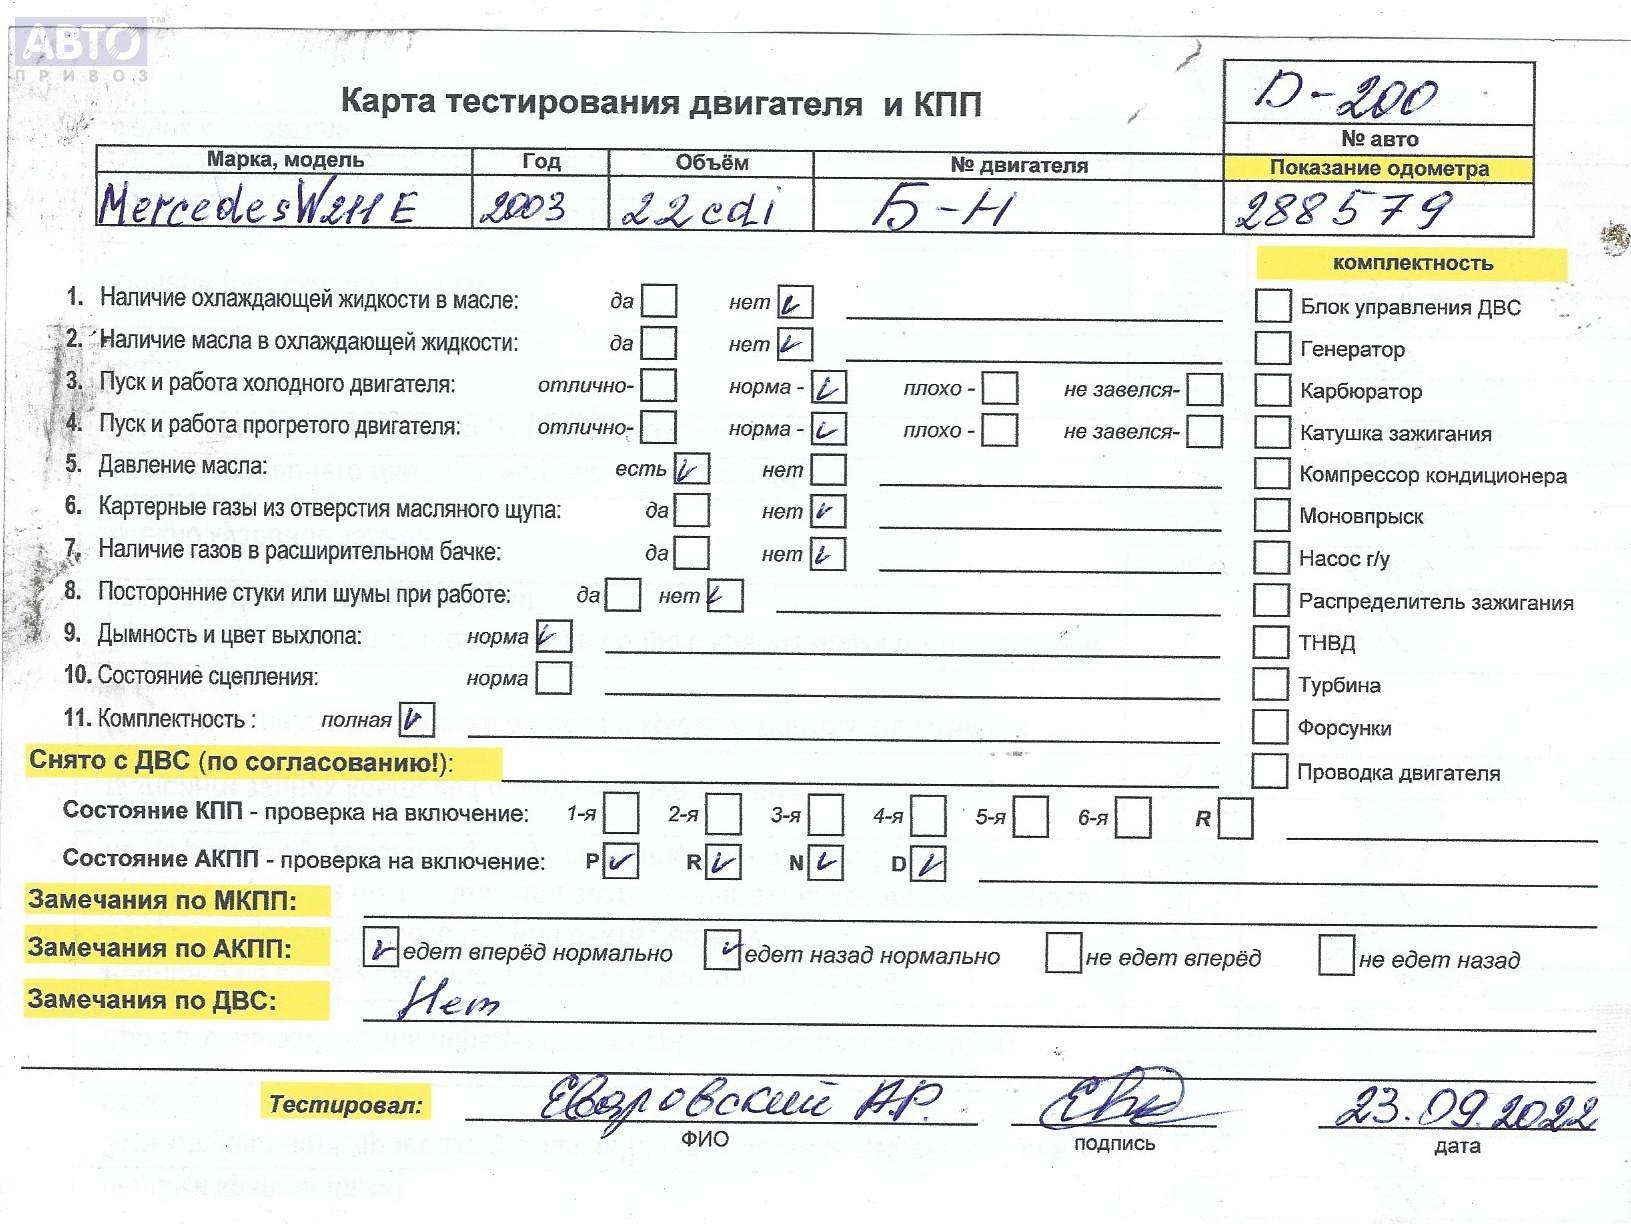 АВТО™
ПРИВОЗ
D-200
Карта тестирования двигателя и КПП
№ авто
Марка, модель Год Объём № двигателя Показание одометра
Mercedes W211 E 2003 22cdi Б-Н 288579
комплектность
1. Наличие охлаждающей жидкости в масле: да нет Блок управления ДВС
2. Наличие масла в охлаждающей жидкости: да нет Генератор
3. Пуск и работа холодного двигателя: отлично- норма - плохо - не завелся- Карбюратор
4. Пуск и работа прогретого двигателя: отлично- норма - плохо - не завелся- Катушка зажигания
5. Давление масла: есть нет Компрессор кондиционера
6. Картерные газы из отверстия масляного щупа: да нет Моновпрыск
7. Наличие газов в расширительном бачке: да нет Насос г/у
8. Посторонние стуки или шумы при работе: да нет Распределитель зажигания
9. Дымность и цвет выхлопа: норма ТНВД
10. Состояние сцепления: норма Турбина
11. Комплектность : полная Форсунки
Снято с ДВС (по согласованию!): Проводка двигателя
Состояние КПП - проверка на включение: 1-я 2-я 3-я 4-я 5-я 6-я R
Состояние АКПП - проверка на включение: P R N D
Замечания по МКПП:
Замечания по АКПП: едет вперёд нормально едет назад нормально не едет вперёд не едет назад
Замечания по ДВС: Нет
Тестировал: А.Р. 23.09.2022
ФИО подпись дата